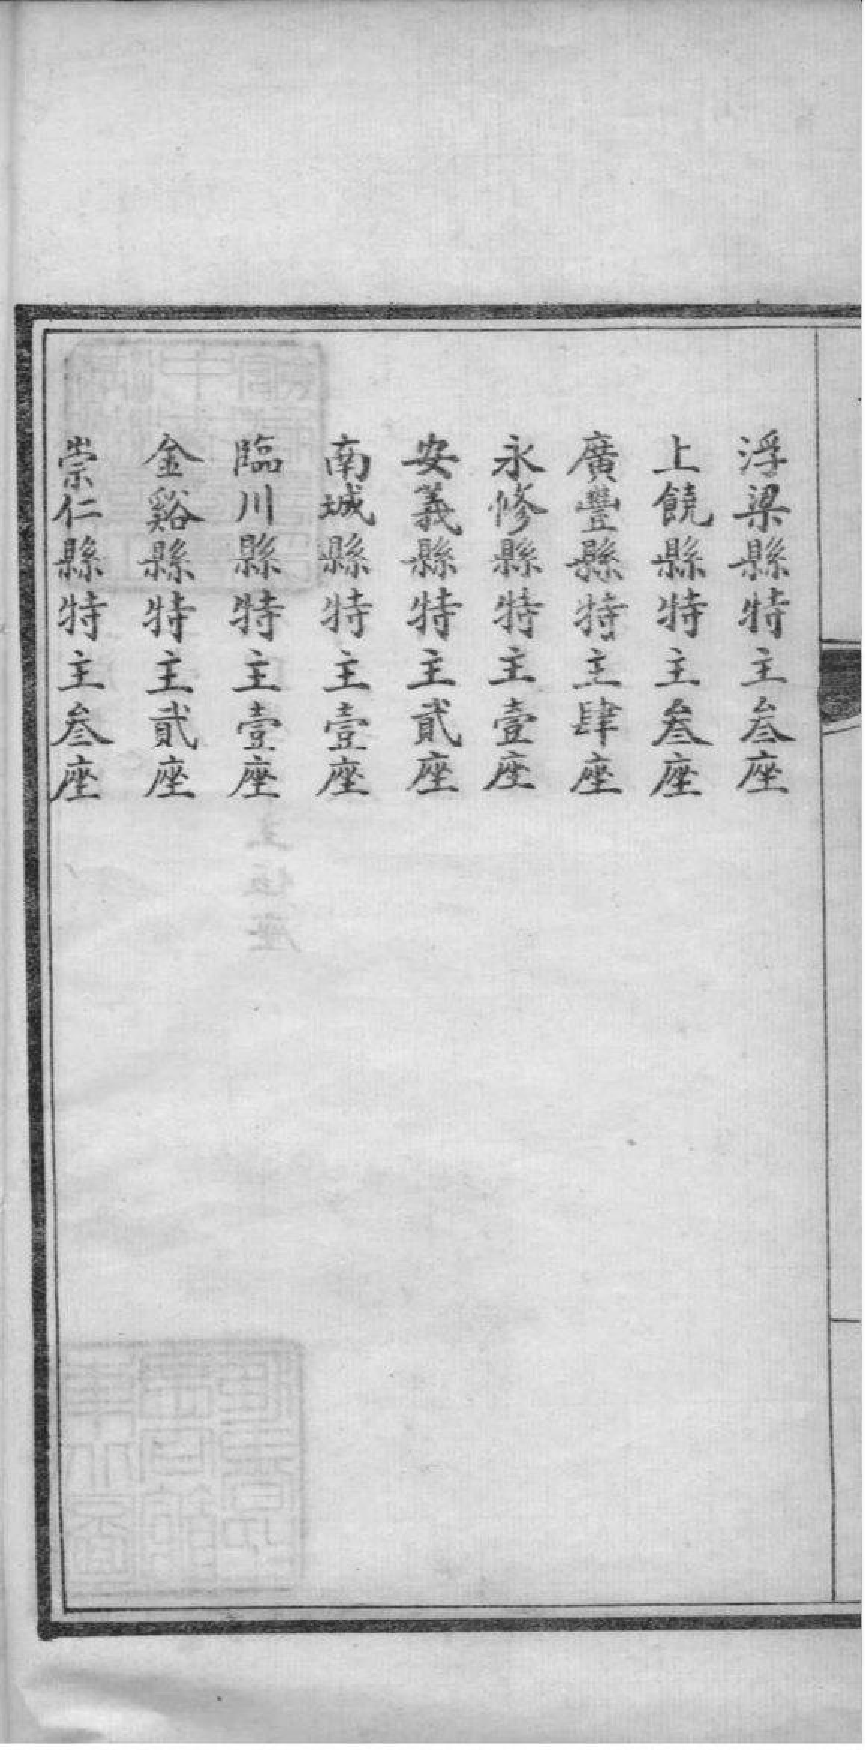 浮梁縣特主叁座
上饒縣特主叁座
廣豐縣特主肆座
永修縣特主壹座
安義縣特主貳座
南城縣特主壹座
臨川縣特主壹座
金谿縣特主貳座
崇仁縣特主叁座